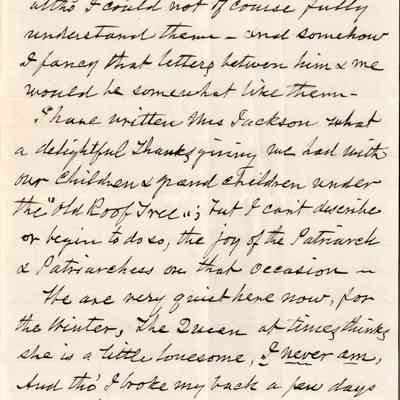 altho' I could not of course fully
understand them - and somehow
I fancy that letters betwen him & me
would be somewhat like them -
I have written Mrs Jackson what
a delightful Thanksgiving we had with
our Children & grand Children under
the "Old Roof Tree"; but I can't describe
or begin to do so, the joy of the Patriarch
& Patriarchess on that occasion -
We are very quiet here now, for
the Winter, The Queen at times thinks
she is a little lonesome, I never am,
And tho' I broke my back a few days